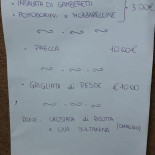 - INSALATA DI GAMBERETTI
- POMODORINI E MOZZARELLINE
3.00€
- PAELLA 10.00€
- GRIGLIATA DI PESCE €10.00
DOLCE: CROSTATA DI RICOTTA
E UVA SULTANINA